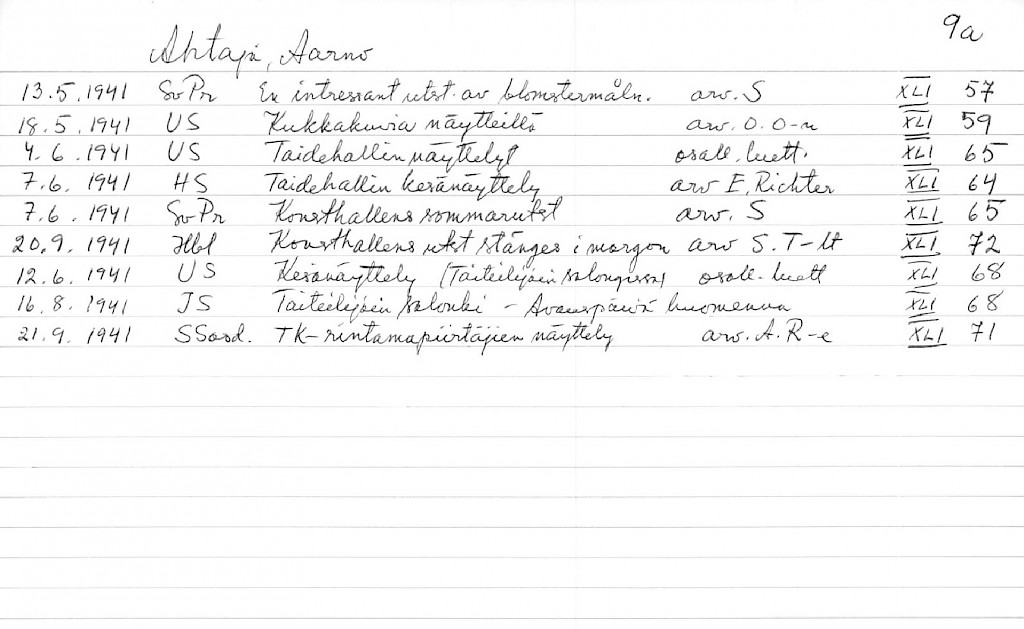 9a
Ahtaja, Aarno
13.5.1941 SvPr En intressant utst. av blomstermåln. arv. S XLI 57
18.5.1941 US Kukkakuvia näytteillä arv. O.O-n XLI 59
4.6.1941 US Taidehallin näyttelyt osall. luett. XLI 65
7.6.1941 HS Taidehallin kesänäyttely arv E. Richter XLI 64
7.6.1941 SvPr Konsthallens sommarutst arv. S XLI 65
20.9.1941 Hbl Konsthallens utst stänges i morgon arv S.T-lt XLI 72
12.6.1941 US Kesänäyttely (Taiteilijain salongissa) osall. luett XLI 68
16.8.1941 IS Taiteilijain salonki - Avauspäivä huomenna XLI 68
21.9.1941 SSosd. TK-rintamapiirtäjien näyttely arv. A.R-e XLI 71